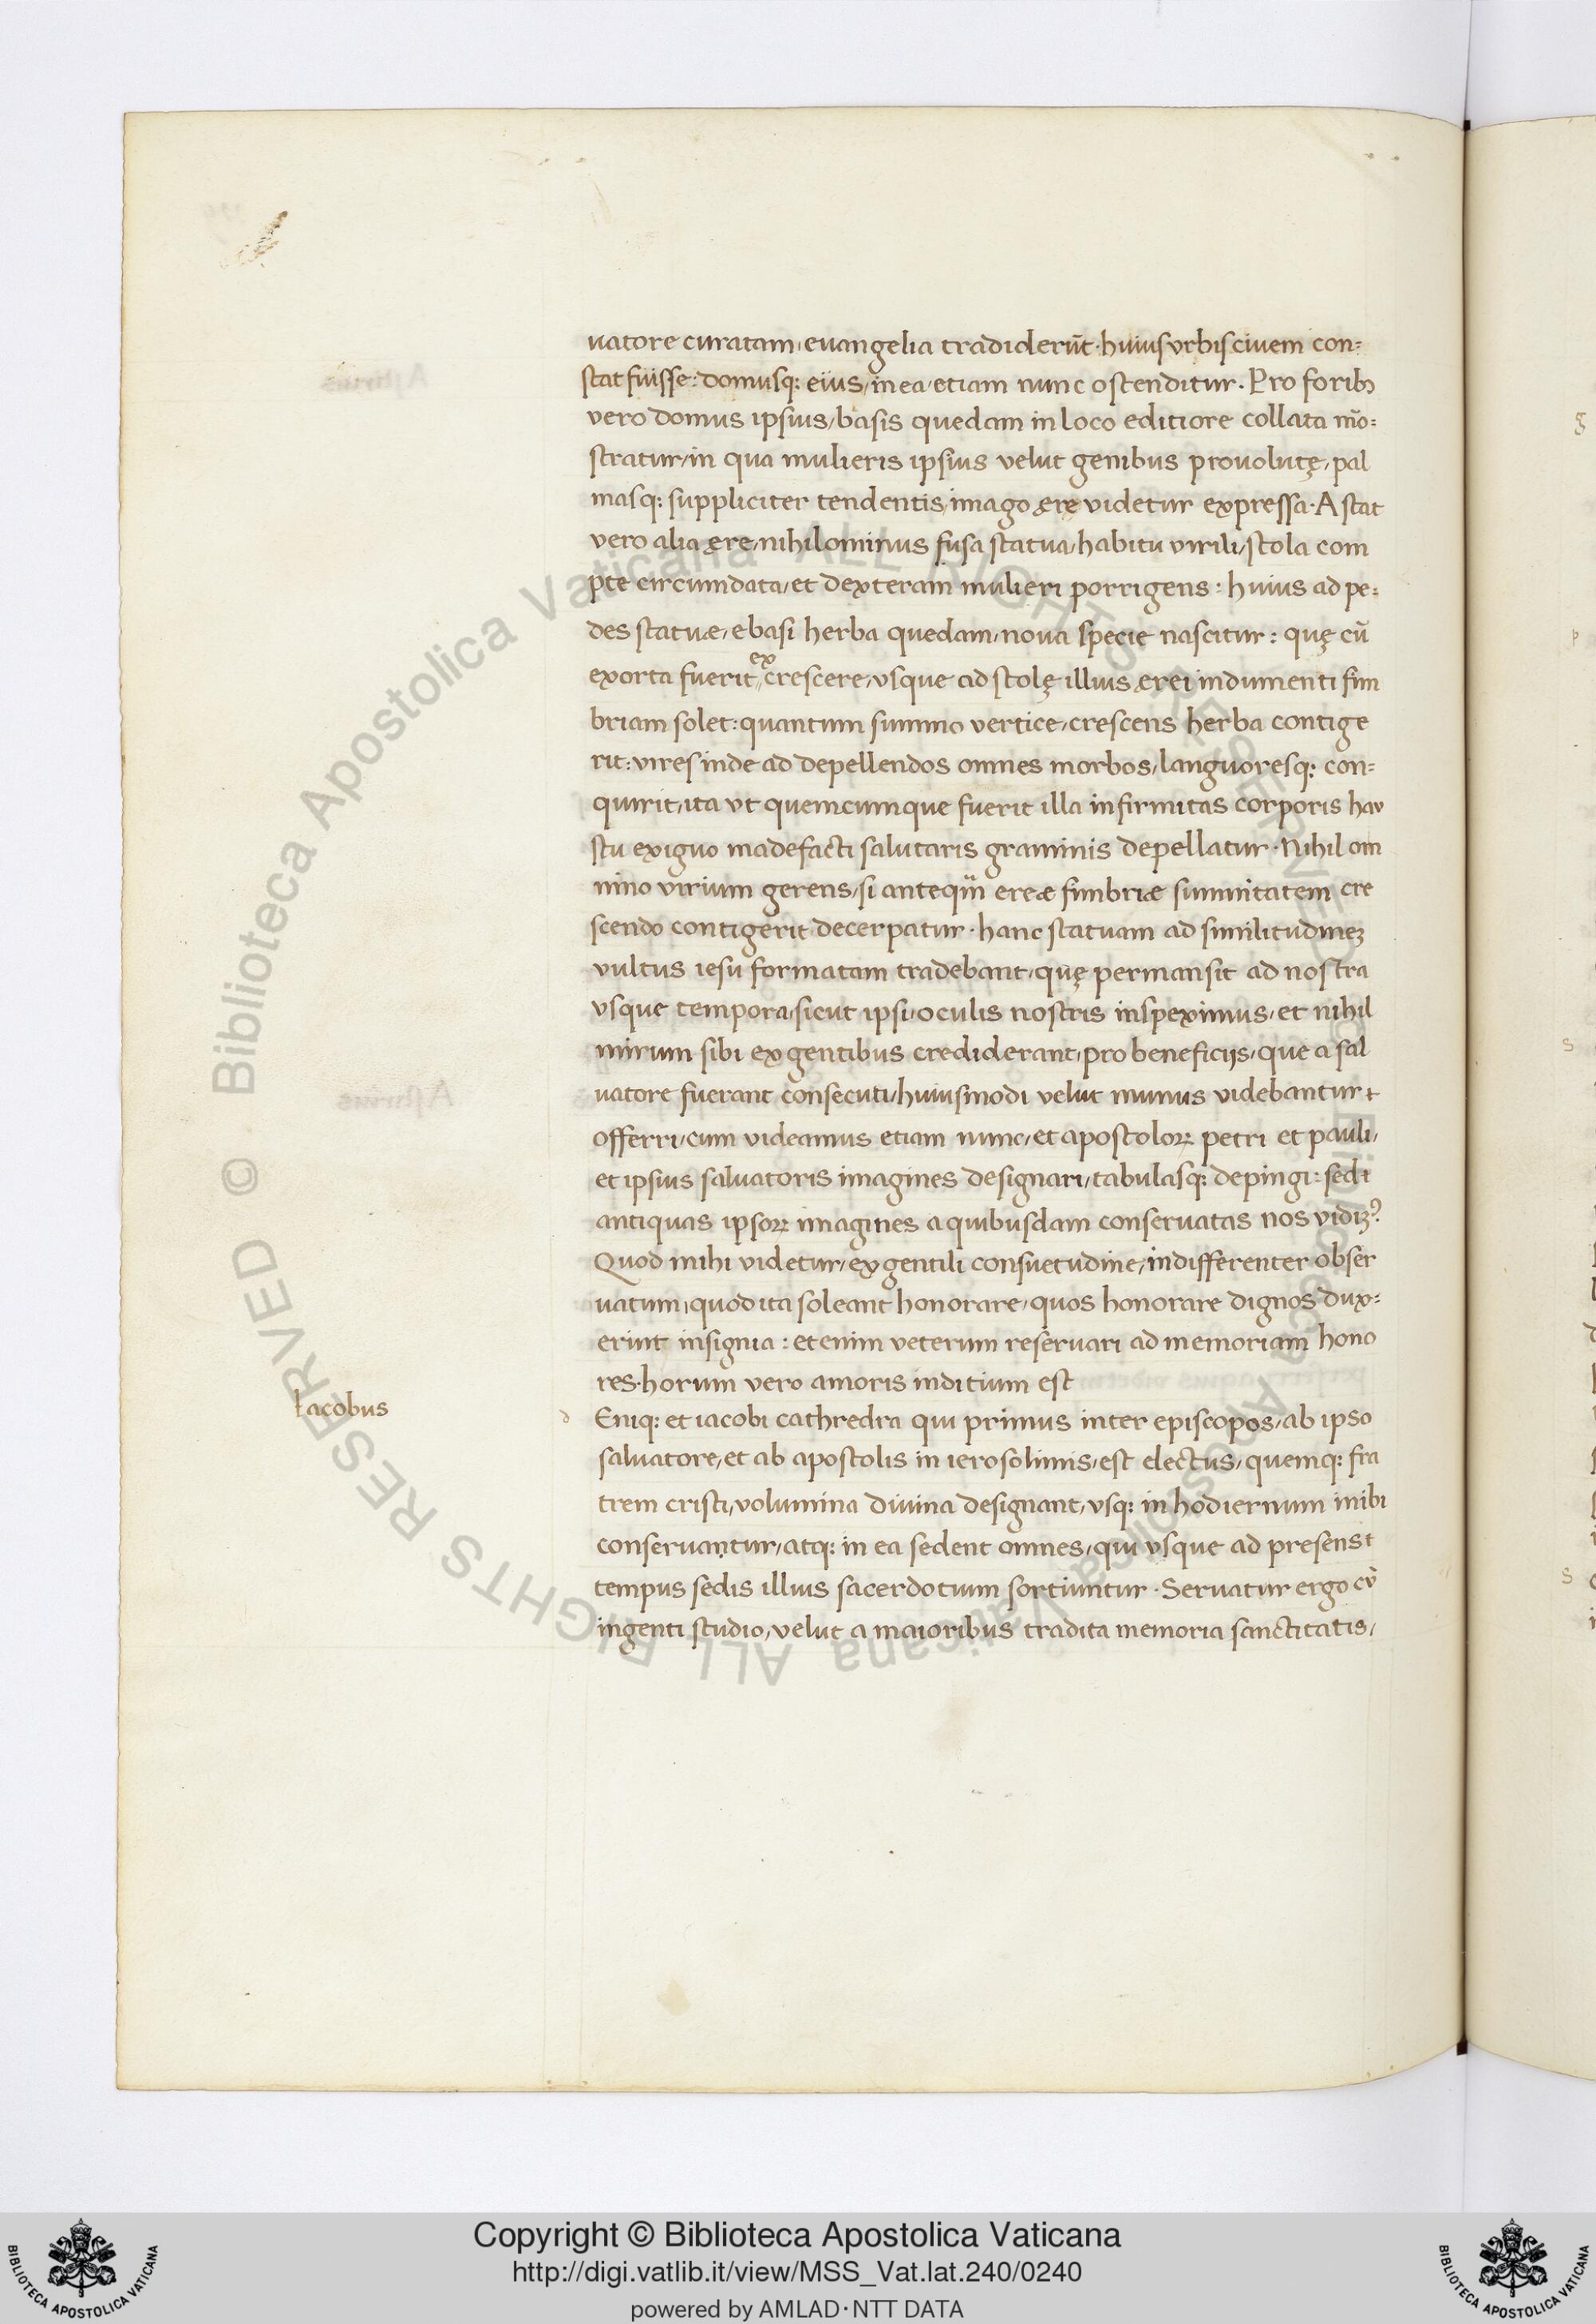 uatore curatam, euangelia tradiderūt. huius urbis ciuem con=
stat fuisse: domusq; eius, in ea, etiam nunc ostenditur. Pro foribꝫ
vero domus ipsius, basis quedam in loco editiore collata mō=
stratur, in qua mulieris ipsius velut genibus prouolutę, pal
masq; suppliciter tendentis, imago ęre videtur expressa. Astat
vero alia ęre, nihilominus fusa statua, habitu virili, stola com
pte circumdata, et dexteram mulieri porrigens: huius ad pe=
des statuæ, e basi herba quedam, noua specie nascitur: quę cū
ex
exorta fuerit, crescere, vsque ad stolę illius ęrei indumenti fim
briam solet: quantum summo vertice, crescens herba contige
rit: vires inde ad depellendos omnes morbos, languoresq; con=
quirit, ita vt quemcumque fuerit illa infirmitas corporis hau
stu exiguo madefacti salutaris graminis depellatur. Nihil om
nino virium gerens, si anteqm̄ ereæ fimbriæ summitatem cre
scendo contigerit decerpatur. hanc statuam ad similitudineꝫ
vultus iesu formatam tradebant, quę permansit ad nostra
vsque tempora, sicut ipsi, oculis nostris inspeximus, et nihil
mirum sibi ex gentibus crediderant, pro beneficijs, que a sal
uatore fuerant consecuti, huiusmodi velut munus videbantur
offerri, cum videamus etiam nunc, et apostoloꝝ petri et pauli,
et ipsius saluatoris imagines designari, tabulasq; depingi: sed
antiquas ipsoꝝ imagines a quibusdam conseruatas nos vidiꝫꝰ.
Quod mihi videtur, ex gentili consuetudine, indifferenter obser
uatum, quod ita soleant honorare, quos honorare dignos dux=
erint insignia: etenim veterum reseruari ad memoriam hono
res. horum vero amoris inditium est
Iacobus
d Eniq; et iacobi cathredra qui primus inter episcopos, ab ipso
saluatore, et ab apostolis in ierosolimis, est electus, quemq; fra
trem cristi, volumina diuina designant, vsq; in hodiernum inibi
conseruantur, atq; in ea sedent omnes, qui vsque ad presens
tempus sedis illius sacerdotium sortiuntur. Seruatur ergo cū
ingenti studio, velut a maioribus tradita memoria sanctitatis,
© Biblioteca Apostolica Vaticana ALL RIGHTS RESERVED
© Biblioteca Apostolica Vaticana ALL RIGHTS RESERVED
Copyright © Biblioteca Apostolica Vaticana
http://digi.vatlib.it/view/MSS_Vat.lat.240/0240
powered by AMLAD·NTT DATA
BIBLIOTECA APOSTOLICA VATICANA
BIBLIOTECA APOSTOLICA VATICANA